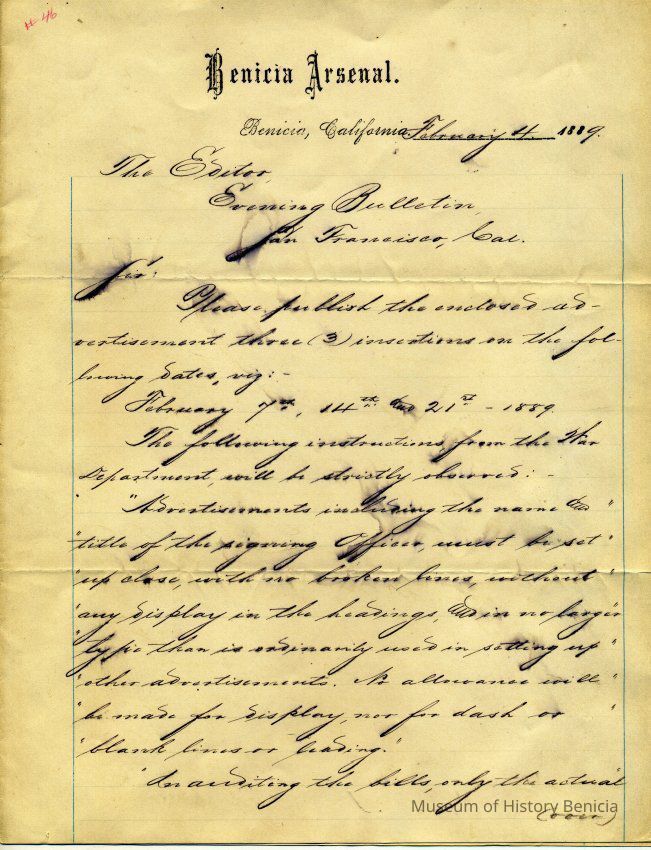 # 46
Benicia Arsenal.
Benicia, California, February 4. 1889.
The Editor,
Evening Bulletin,
San Francisco, Cal.
Sir:
Please publish the enclosed ad-
vertisement three (3) insertions on the fol-
lowing dates, viz:-
February 7th, 14th and 21st - 1889.
The following instructions from the War
Department, will be strictly observed:-
"Advertisements including the name and"
"title of the signing Officer, must be set"
"up close, with no broken lines, without"
"any display in the headings, and in no larger"
"type than is ordinarily used in setting up"
"other advertisements. No allowance will"
"be made for display, nor for dash or"
"blank lines or leading."
"In auditing the bills, only the actual"
(over)
Museum of History Benicia